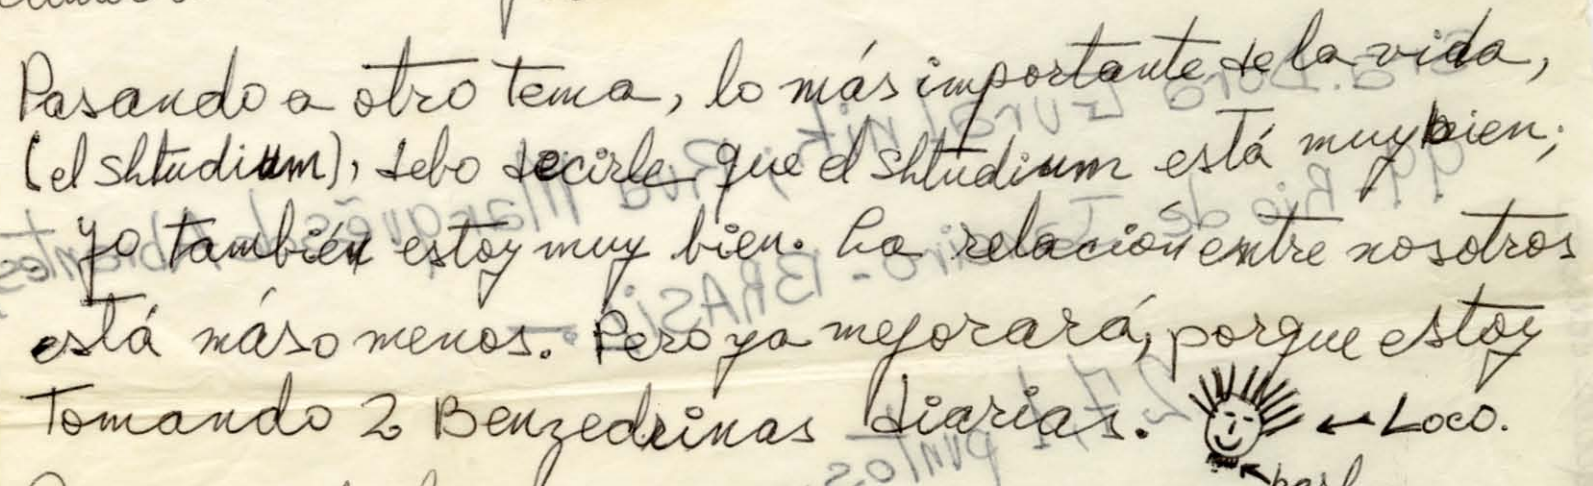 Pasando a otro tema, lo más importante de la vida,
(el shtudium), debo decirle que el shtudium está muy bien;
yo también estoy muy bien. La relación entre nosotros
está más o menos. Pero ya mejorará, porque estoy
Tomando 2 Benzedrinas diarias. ← Loco.